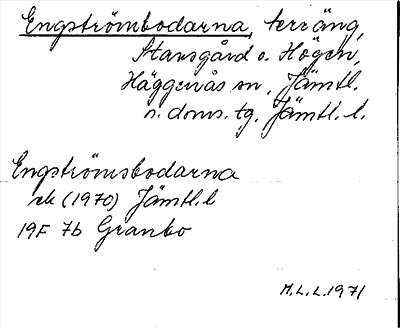 Engströmbodarna, terräng,
Stansgård o. Högen,
Häggenås sn, Jämtl.
n. doms. tg. Jämtl. l.
Engströmsbodarna
ek (1970) Jämtl. l
19F 7b Granbo
M.L.L. 1971